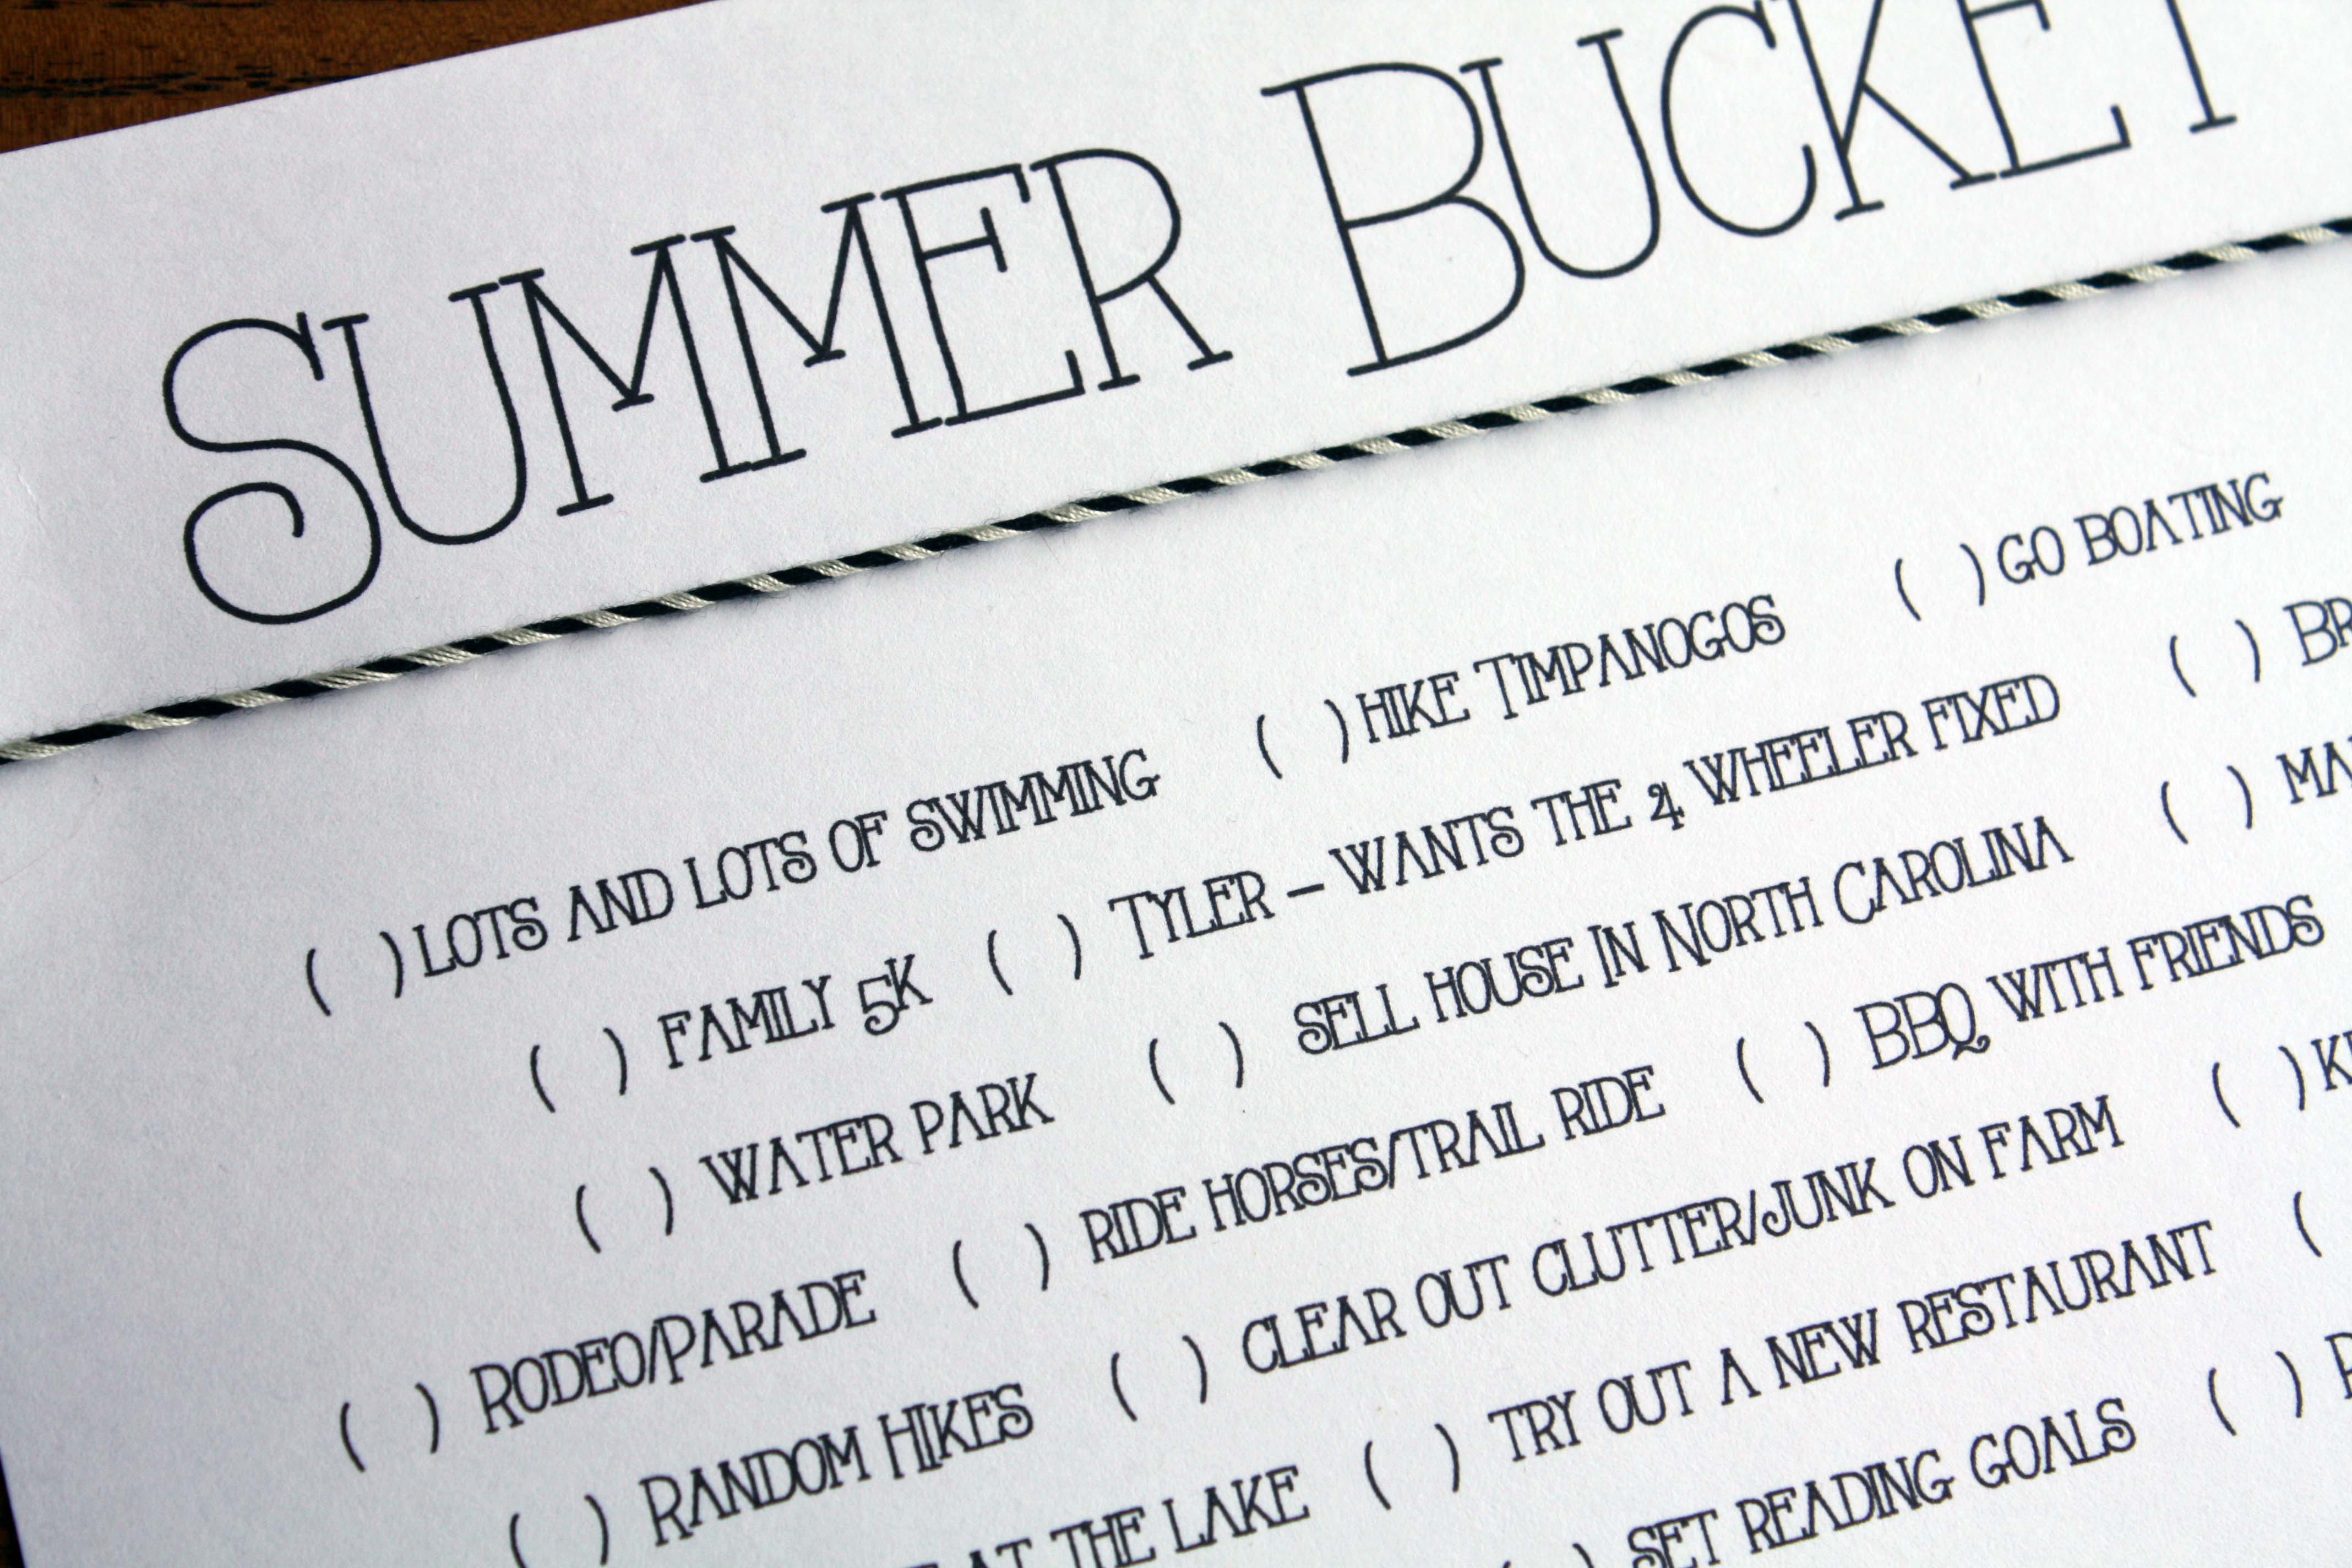 SUMMER BUCKET
( ) LOTS AND LOTS OF SWIMMING ( ) HIKE TIMPANOGOS ( ) GO BOATING
( ) FAMILY 5K ( ) TYLER – WANTS THE 4 WHEELER FIXED ( )
( ) WATER PARK ( ) SELL HOUSE IN NORTH CAROLINA ( )
( ) RODEO/PARADE ( ) RIDE HORSES/TRAIL RIDE ( ) BBQ WITH FRIENDS
( ) RANDOM HIKES ( ) CLEAR OUT CLUTTER/JUNK ON FARM ( )
AT THE LAKE ( ) TRY OUT A NEW RESTAURANT (
) SET READING GOALS ( )